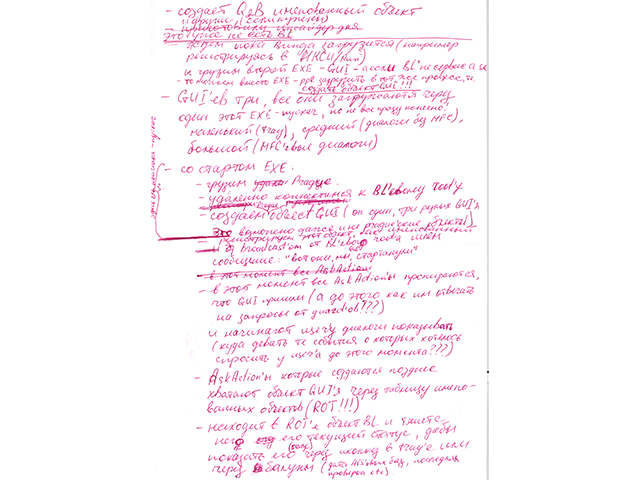 - создаёт QeB именованный объект
и другие (если нужны)
это уже не есть BL
- ждём пока винда загрузится (например
регистрируясь в "HKCU/Run")
и грузим второй EXE - GUI - если BL не сервис а exe
- то можем вместо EXE - загрузить в тот же процесс, т.е.
создать объект GUI!!!
- GUI'ев три, все они загружаются через
один этот EXE - пускач, но не все сразу конечно!
маленький (tray), средний (диалоги без MFC),
большой (MFC'евые диалоги)
- со стартом EXE:
- грузим Prague
- удалённо коннектимся к BL'евому root'у
- создаём объект GUI (он один, три разных GUI'я
возможно даже ине prague'ские объекты)
- регистрируем этот объект как именованный
- и broadcast'ом от BL'евого root'а шлём
сообщение: "вот они, мы, стартанули"
- в этот момент все AskAction
- в этот момент все AskAction'ы просираются,
что GUI пришли (а до этого как им отвечать
на запросы от диалогов???)
и начинают юзеру диалоги показывать
(куда девать те события о которых хотелось
спросить у юзера до этого момента???)
- AskAction'ы которые создаются позднее
хватают объект GUI'я через таблицу имено-
ванных объектов (ROT!!!)
- находит в ROT'е объект BL и
него его текущий статус, дабы
показать его через иконку в tray'е или
через балуны (дата AV'ёвых баз, последняя
проверка etc).